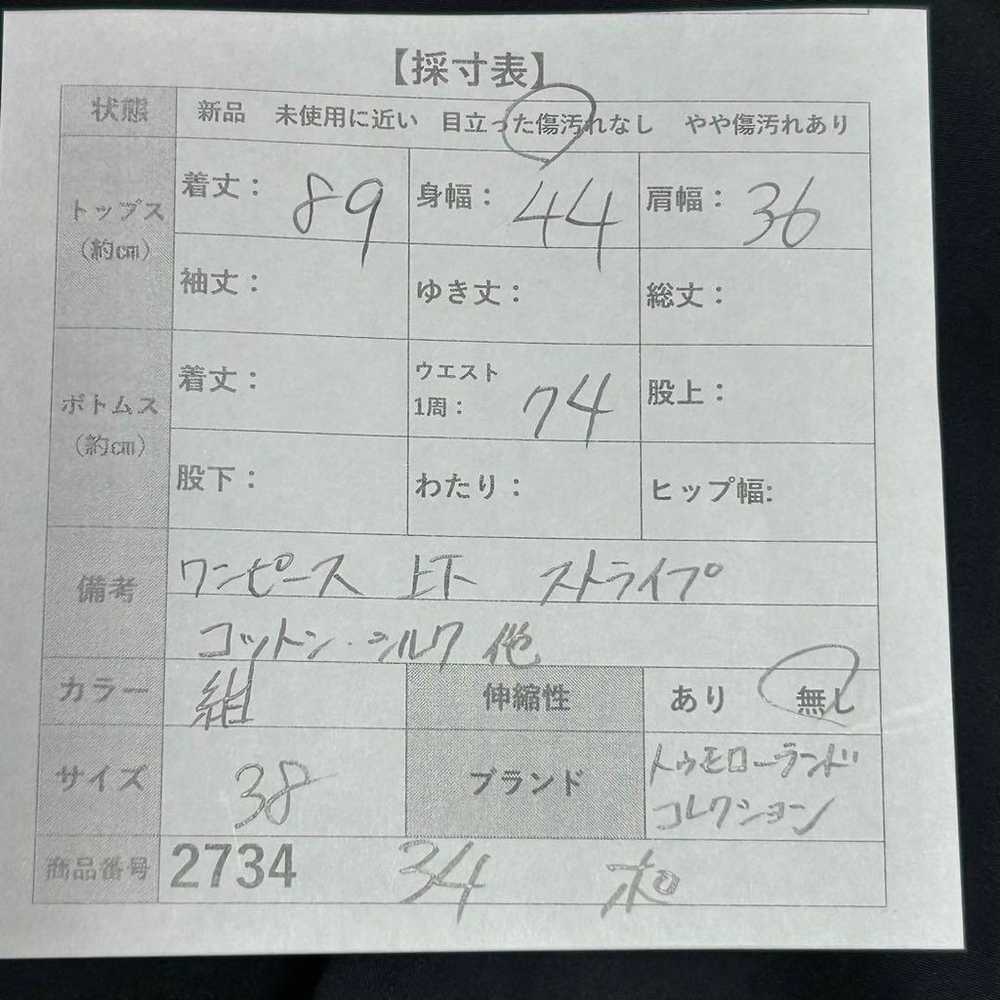 【採寸表】
状態 新品 未使用に近い 目立った傷汚れなし やや傷汚れあり
トップス (約cm) 着丈: 89 身幅: 44 肩幅: 36
袖丈: ゆき丈: 総丈:
ボトムス (約cm) 着丈: ウエスト 1周: 74 股上:
股下: わたり: ヒップ幅:
備考 ワンピース 上下 ストライプ
コットン・シルク 他
カラー 紺 伸縮性 あり 無し
サイズ 38 ブランド トゥモローランド
コレクション
商品番号 2734 34